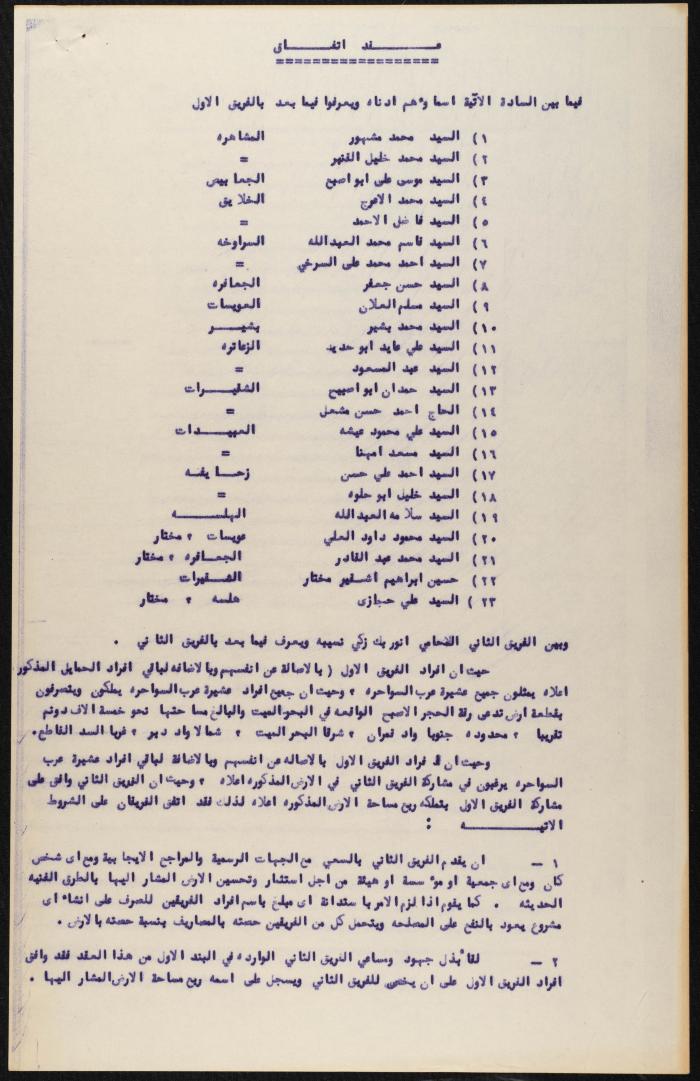 عـــــقد اتفـــــاق
فيما بين السادة الآتية اسماؤهم ادناه ويعرفوا فيما بعد بالفريق الاول
١) السيد محمد مشهور المشاهره
٢) السيد محمد خليل القنبر =
٣) السيد موسى علي ابو اصبع الجعابيص
٤) السيد محمد الاعرج الخلايق
٥) السيد فاضل الاحمد =
٦) السيد قاسم محمد العبدالله السراوخه
٧) السيد احمد محمد علي السرخي =
٨) السيد حسن جعفر الجعافره
٩) السيد مسلم العلان العويسات
١٠) السيد محمد بشير بشيـــر
١١) السيد علي عايد ابو حديد الزعاتره
١٢) السيد عبد المسعود =
١٣) السيد حمدان ابو اصبيح الشقيـــرات
١٤) الحاج احمد حسن مشعل =
١٥) السيد علي محمود عيشه العبيـــدات
١٦) السيد مسعد امهنا =
١٧) السيد احمد علي حسن زحـايفـه
١٨) السيد خليل ابو حلوه =
١٩) السيد سلامه العبدالله الهلســـه
٢٠) السيد محمود داود العلي عويسات ، مختار
٢١) السيد محمد عبد القادر الجعـافره ، مختار
٢٢) حسين ابراهيم اشقير مختار الشـقيرات
٢٣) السيد علي حجازى هلسه ، مختار
وبين الفريق الثاني المحامي انور بك زكي نسيبه ويعرف فيما بعد بالفريق الثاني .
حيث ان افراد الفريق الاول ( بالاصالة عن انفسهم وبالاضافه لباقي افراد الحمايل المذكور
اعلاه يمثلون جميع عشيرة عرب السواحره ، وحيث ان جميع افراد عشيرة عرب السواحره يملكون ويتصرفون
بقطعة ارض تدعى رقة الحجر الاصبح الواقعه في البحر الميت والبالغ مساحتها نحو خمسة الاف دونم
تقريبا ، محدوده جنوبا واد قمران ، شرقا البحر الميت ، شمالا واد دبر ، غربا السد القاطع.
وحيث ان افراد الفريق الاول بالاصاله عن انفسهم وبالاضافة لباقي افراد عشيرة عرب
السواحره يرغبون في مشاركة الفريق الثاني في الارض المذكوره اعلاه ، وحيث ان الفريق الثاني وافق على
مشاركة الفريق الاول بتملكه ربع مساحة الارض المذكوره اعلاه لذلك فقد اتفق الفريقان على الشروط
الاتيـــــــه :
١ - ان يقدم الفريق الثاني بالسعي مع الجهات الرسمية والمراجع الايجابية ومع اى شخص
كان ومع اى جمعية او مؤسسة او هيئة من اجل استثمار وتحسين الارض المشار اليها بالطرق الفنيه
الحديثه . كما يقوم اذا لزم الامر باستدانة اى مبلغ باسم افراد الفريقين للصرف على انشاء اى
مشروع يعود بالنفع على المصلحه ويتحمل كل من الفريقين حصته بالمصاريف بنسبة حصته بالارض .
٢ - لقاء بذل جهود ومساعي الفريق الثاني الوارده في البند الاول من هذا العقد فقد وافق
افراد الفريق الاول على ان يخصص للفريق الثاني ويسجل على اسمه ربع مساحة الارض المشار اليها .